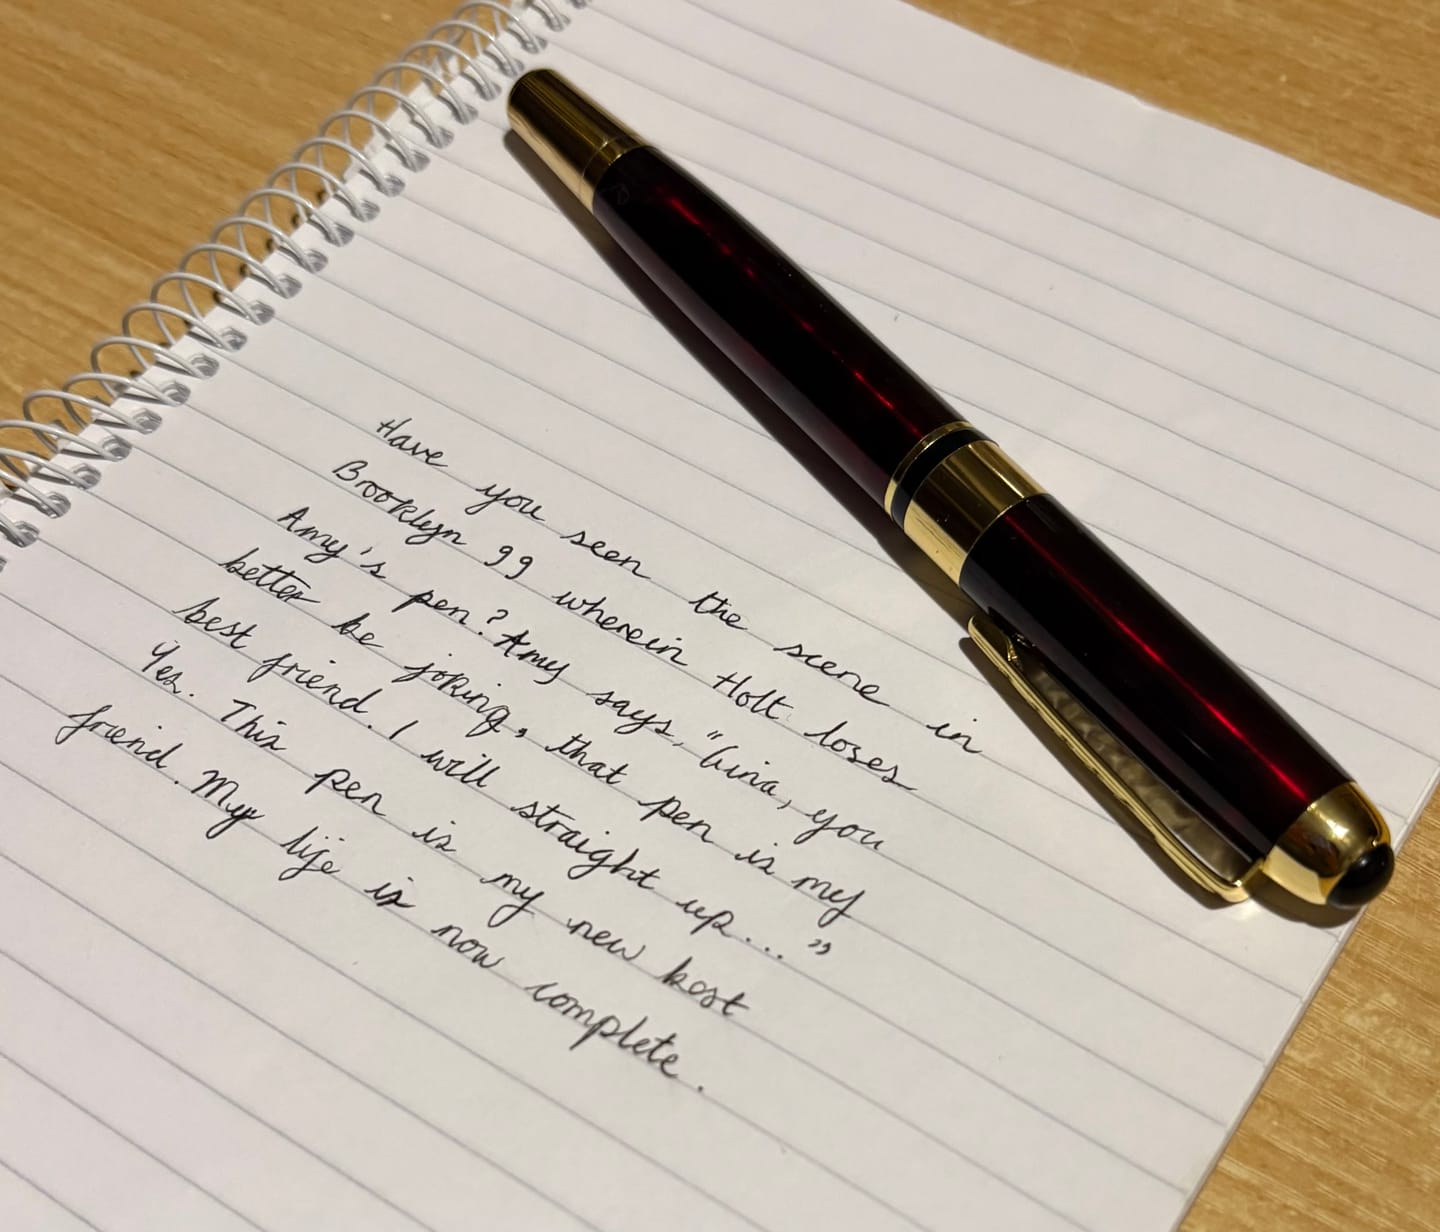 Have you seen the scene in
Brooklyn 99 wherein Holt loses
Amy's pen? Amy says, "Gina, you
better be joking, that pen is my
best friend. I will straight up..."
Yes. This pen is my new best
friend. My life is now complete.